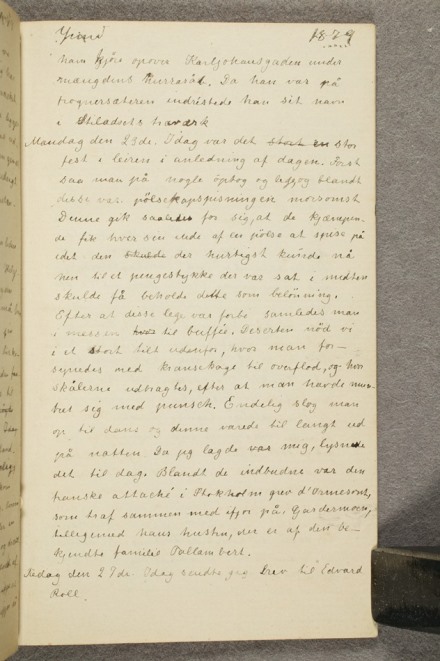 Juni 1879
ham kjöre opover Karl johansgaden under
mængdens hurraraab. Da han var på
frognersæteren indristede han sit navn
i Stiladsets træværk
Mandag den 23de. Idag var det stort en stor
fest i leiren i anledning af dagen. Først
saa man på nogle optog og lege blandt
disse var pölsekapspisningen morsomst
Denne gik saaledes for sig, at de kjæmpen-
de fik hver sin ende af en pölse at spise på
idet den skulde der hurtigst kunde nå
hen til et pengestykke der var sat i midten
skulde få beholde dette som belönning.
Efter at disse lege var forbi samledes man
i messen til buffée. Deserten nöd vi
i et stort telt udenfor, hvor man for-
synedes med kransekage til overflod, og hvor
skålerne udbragtes, efter at man havde
set sig med punsch. Endelig slog man
op til dans og denne varede til langt ud
på natten. Da jeg lagde mig, lysnede
det til dag. Blandt de indbudne var den
franske attaché i Stokholm grev d'Ormesson,
som traf sammen med ifjor på Gardermoen,
tilligemed hans hustru, der er af den be-
kjendte familie
Fredag den 27de. Idag sendte jeg brev til Edvard
Roll.